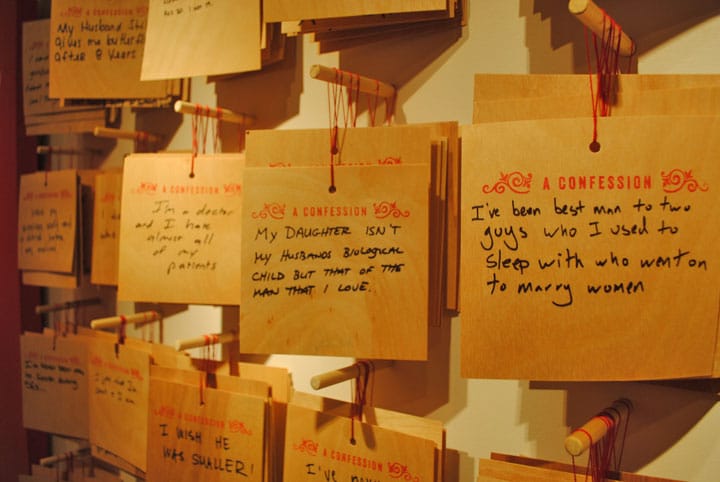 A CONFESSION
My Husband Still
gives me butterflies
after 8 years
A CONFESSION
I'm a doctor
and I hate
almost all
of my
patients
A CONFESSION
My DAUGHTER ISN'T
My HUSBANDS BIOLOGICAL
CHILD BUT THAT OF THE
MAN THAT I LOVE.
A CONFESSION
I've been best man to two
guys who I used to
sleep with who went on
to marry women
A CONFESSION
I WISH HE
WAS SMALLER!
A CONFESSION
I've